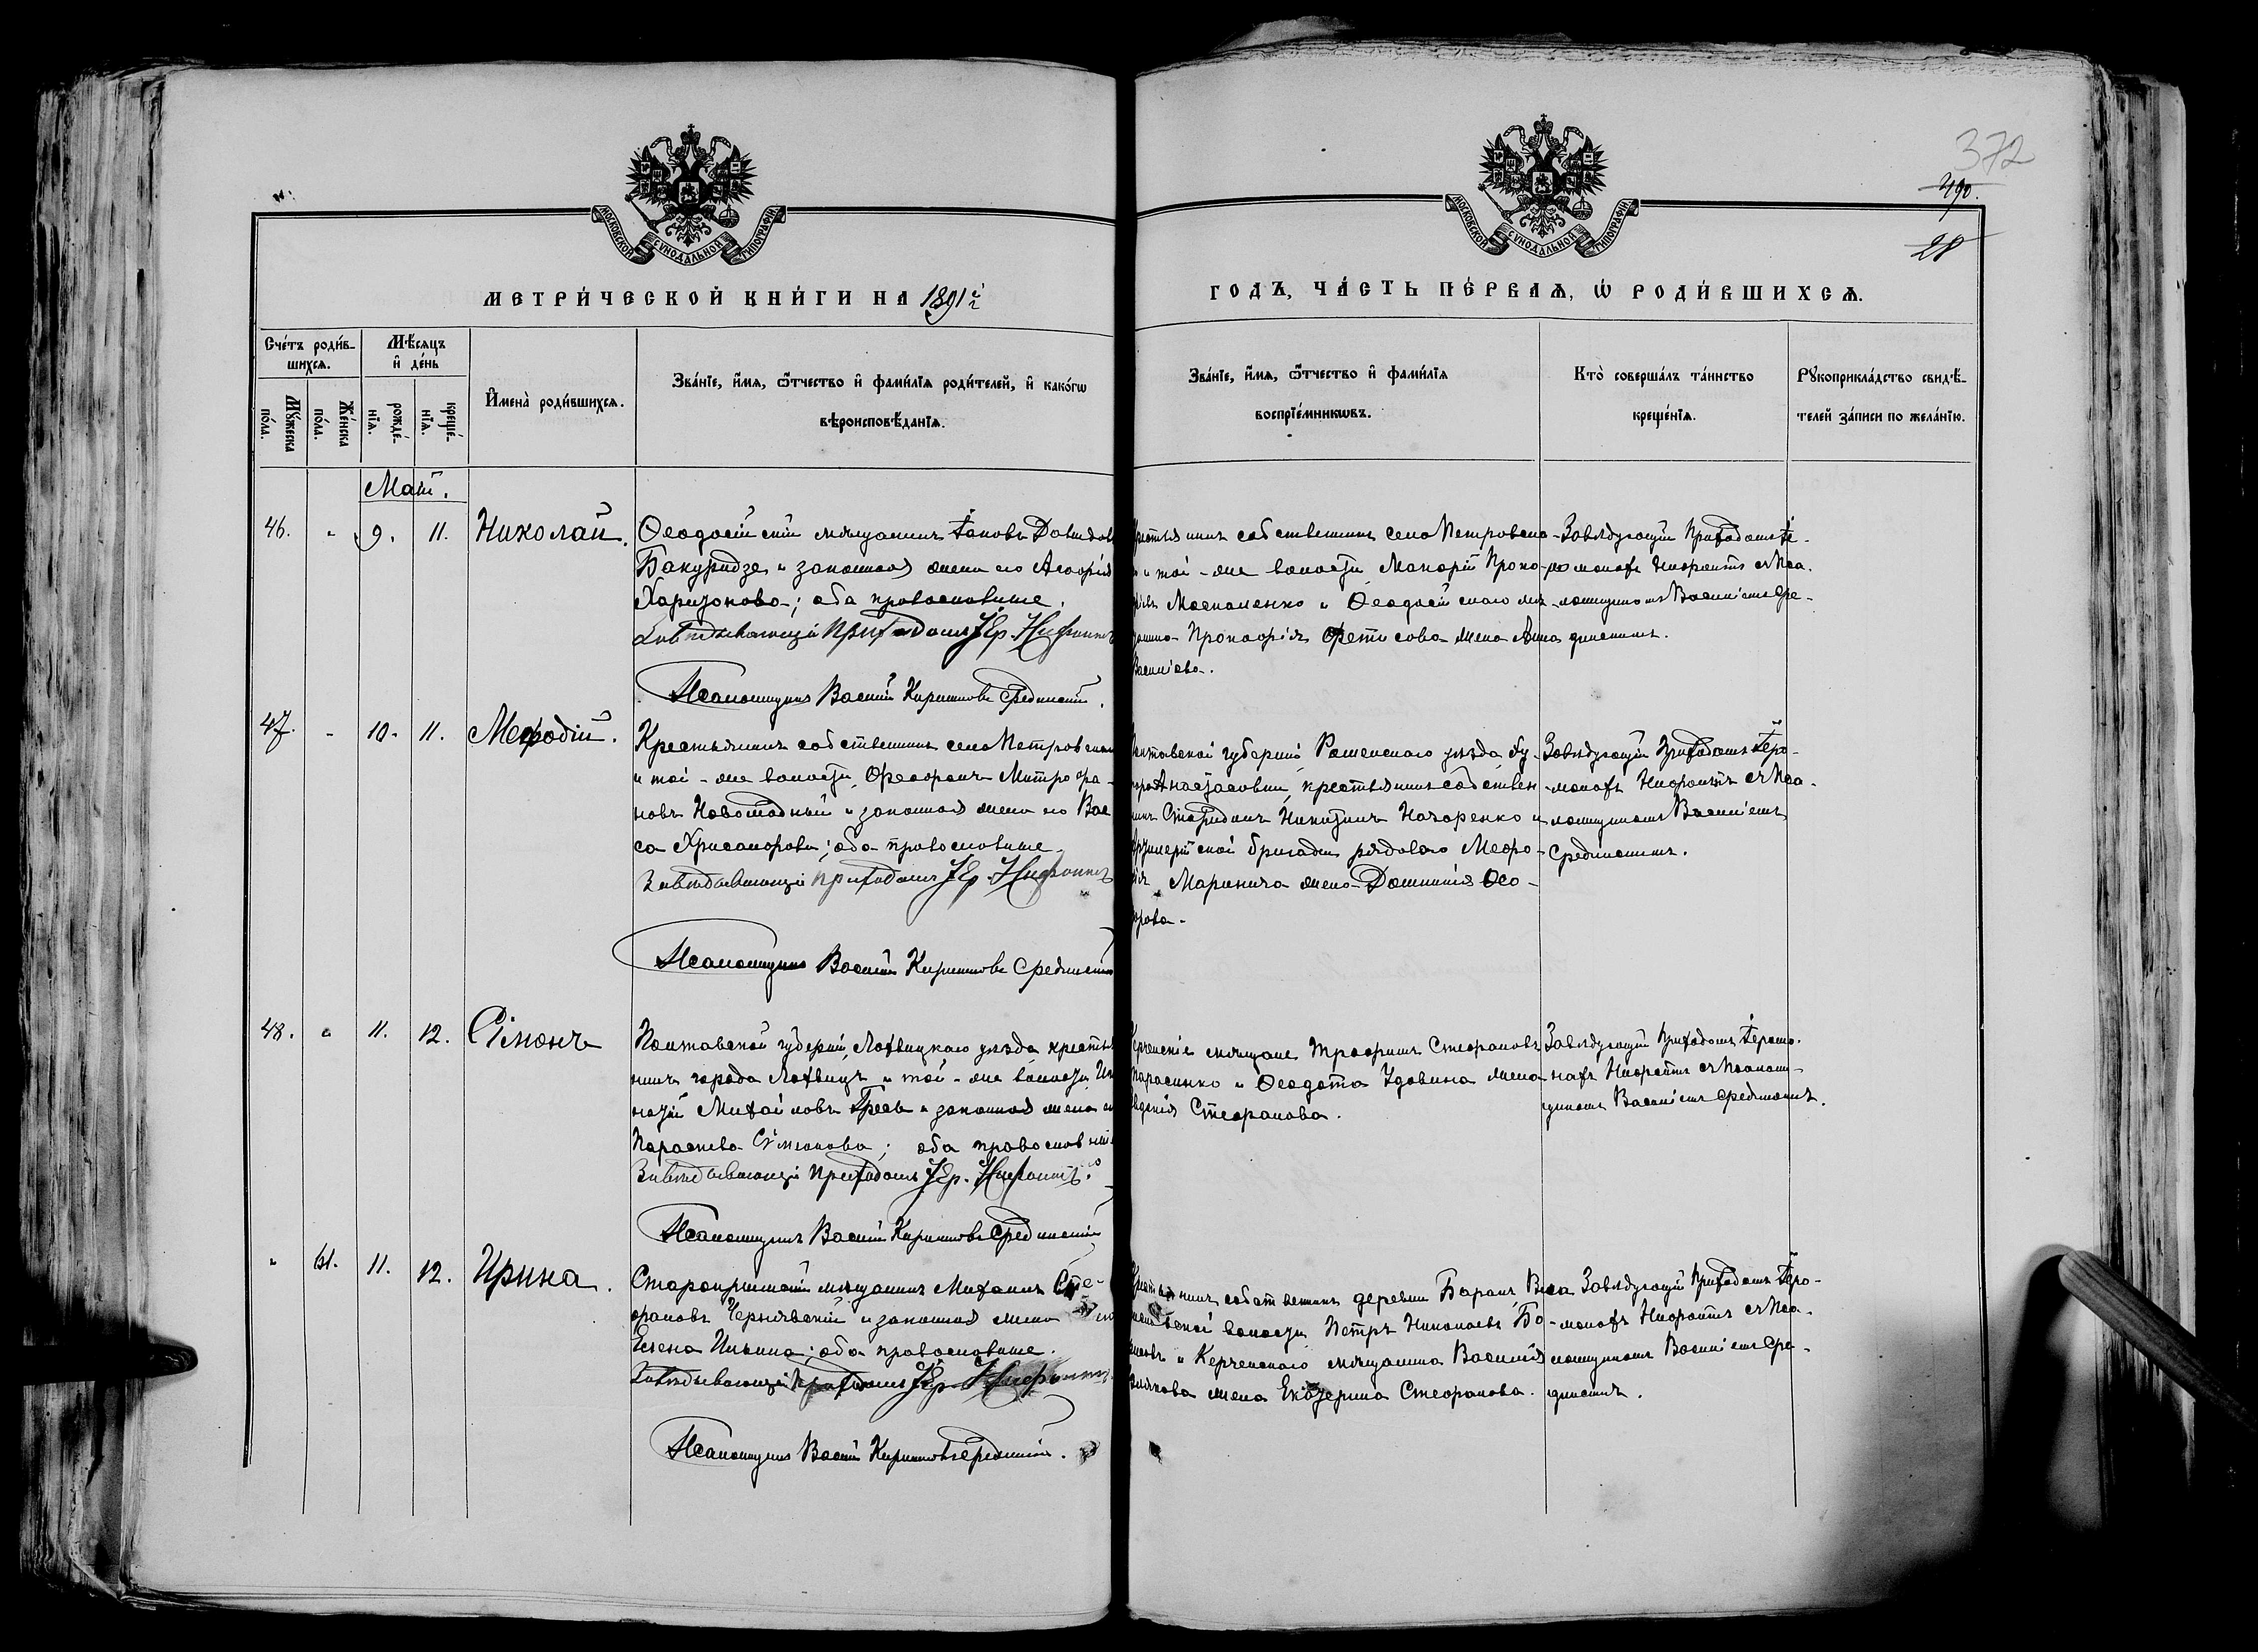 372
490.
28
МОСКОВСКОЙ СУНОДАЛЬНОЙ ТИПОГРАФІИ
МОСКОВСКОЙ СУНОДАЛЬНОЙ ТИПОГРАФІИ
МЕТРИ́ЧЕСКОЙ КНИ́ГИ НА 1891й
ГОДЪ, ЧА́СТЬ ПЕ́РВАѦ, Ѡ҆ РОДИ́ВШИХСѦ.
Сче́тъ роди́в-
шихсѧ.
Мꙋ́жеска по́ла.
Же́нска по́ла.
Мѣ́сяцъ
и҆ де́нь
рожде́-нїѧ.
креще́-нїѧ.
И҆мена̀ роди́вшихсѧ.
Зва́нїе, и҆́мѧ, ѻ҆́тчество и҆ фами́лїѧ роди́телей, и҆ како́гѡ
вѣроисповѣ́данїѧ.
Зва́нїе, и҆́мѧ, ѻ҆́тчество и҆ фами́лїѧ
воспрїе́мникѡвъ.
Кто̀ соверша́лъ та́инство
креще́нїѧ.
Рꙋкоприкла́дство свидѣ́-
телей за́писи по жела́нїю.
Май.
46. " 9. 11. Николай.
Ѳеодосійскій мѣщанинъ Іаковъ Давидовъ
Бакуридзе и законная жена его
Харитонова; оба православные.
Завѣдывающій Приходомъ Іер. Нифонтъ
Псаломщикъ Василій Кирилловъ Срединскій.
собственникъ села Петровска-
и той-же волости Макарій Проко-
и Ѳеодосійскаго мѣ-
Прокофія Фетисова жена Анна
Васильева.
Завѣдующій Приходомъ Іе-
ромонахъ Нифонтъ съ Пса-
ломщикомъ Василіемъ Сре-
динскимъ.
47. " 10. 11. Меѳодій.
Крестьянинъ собственникъ села Петровскаго
и той-же волости, Ѳеофанъ Митрофа-
новъ и законная жена его Вас-
са Хрисанфова; оба православные.
Завѣдывающій приходомъ Іер. Нифонтъ
Псаломщикъ Василій Кирилловъ Срединскій
Полтавской губерніи, Роменскаго уѣзда,
крестьянинъ собствен-
никъ Никитинъ Назаренко и
Артиллерійской бригады рядового Меѳо-
дія Маринича жена Домникія Ѳео-
дорова.
Завѣдующій Приходомъ Іеро-
монахъ Нифонтъ съ Пса-
ломщикомъ Василіемъ
Срединскимъ.
48. " 11. 12. Сімонъ
Полтавской губерніи, Лохвицкаго уѣзда крестья-
нинъ города Лохвицъ и той-же волости, Иг-
натій Михайловъ и законная жена его
Параскева Сѵмеонова; оба православные
Завѣдывающій Приходомъ Іер. Нифонтъ.
Псаломщикъ Василій Кирилловъ Срединскій
Керченскіе мѣщане Трофимъ Стефановъ
и Ѳеодота Удовина жена
Евдокія Стефанова.
Завѣдующій Приходомъ Іеромо-
нахъ Нифонтъ съ Псалом-
щикомъ Василіемъ Срединскимъ.
" 41. 11. 12. Ирина.
Старокрымскій мѣщанинъ Михаилъ Сте-
фановъ Чернявскій и законная жена его
Елена Ильина; оба православные.
Завѣдывающій Приходомъ Іер. Нифонтъ
Псаломщикъ Василій Кирилловъ Срединскій.
Крестьянинъ собственникъ деревни
волости Петръ Николаевъ Бо-
и Керченскаго мѣщанина Василія
жена Екатерина Стефанова.
Завѣдующій Приходомъ Іеро-
монахъ Нифонтъ съ Пса-
ломщикомъ Василіемъ Сре-
динскимъ.